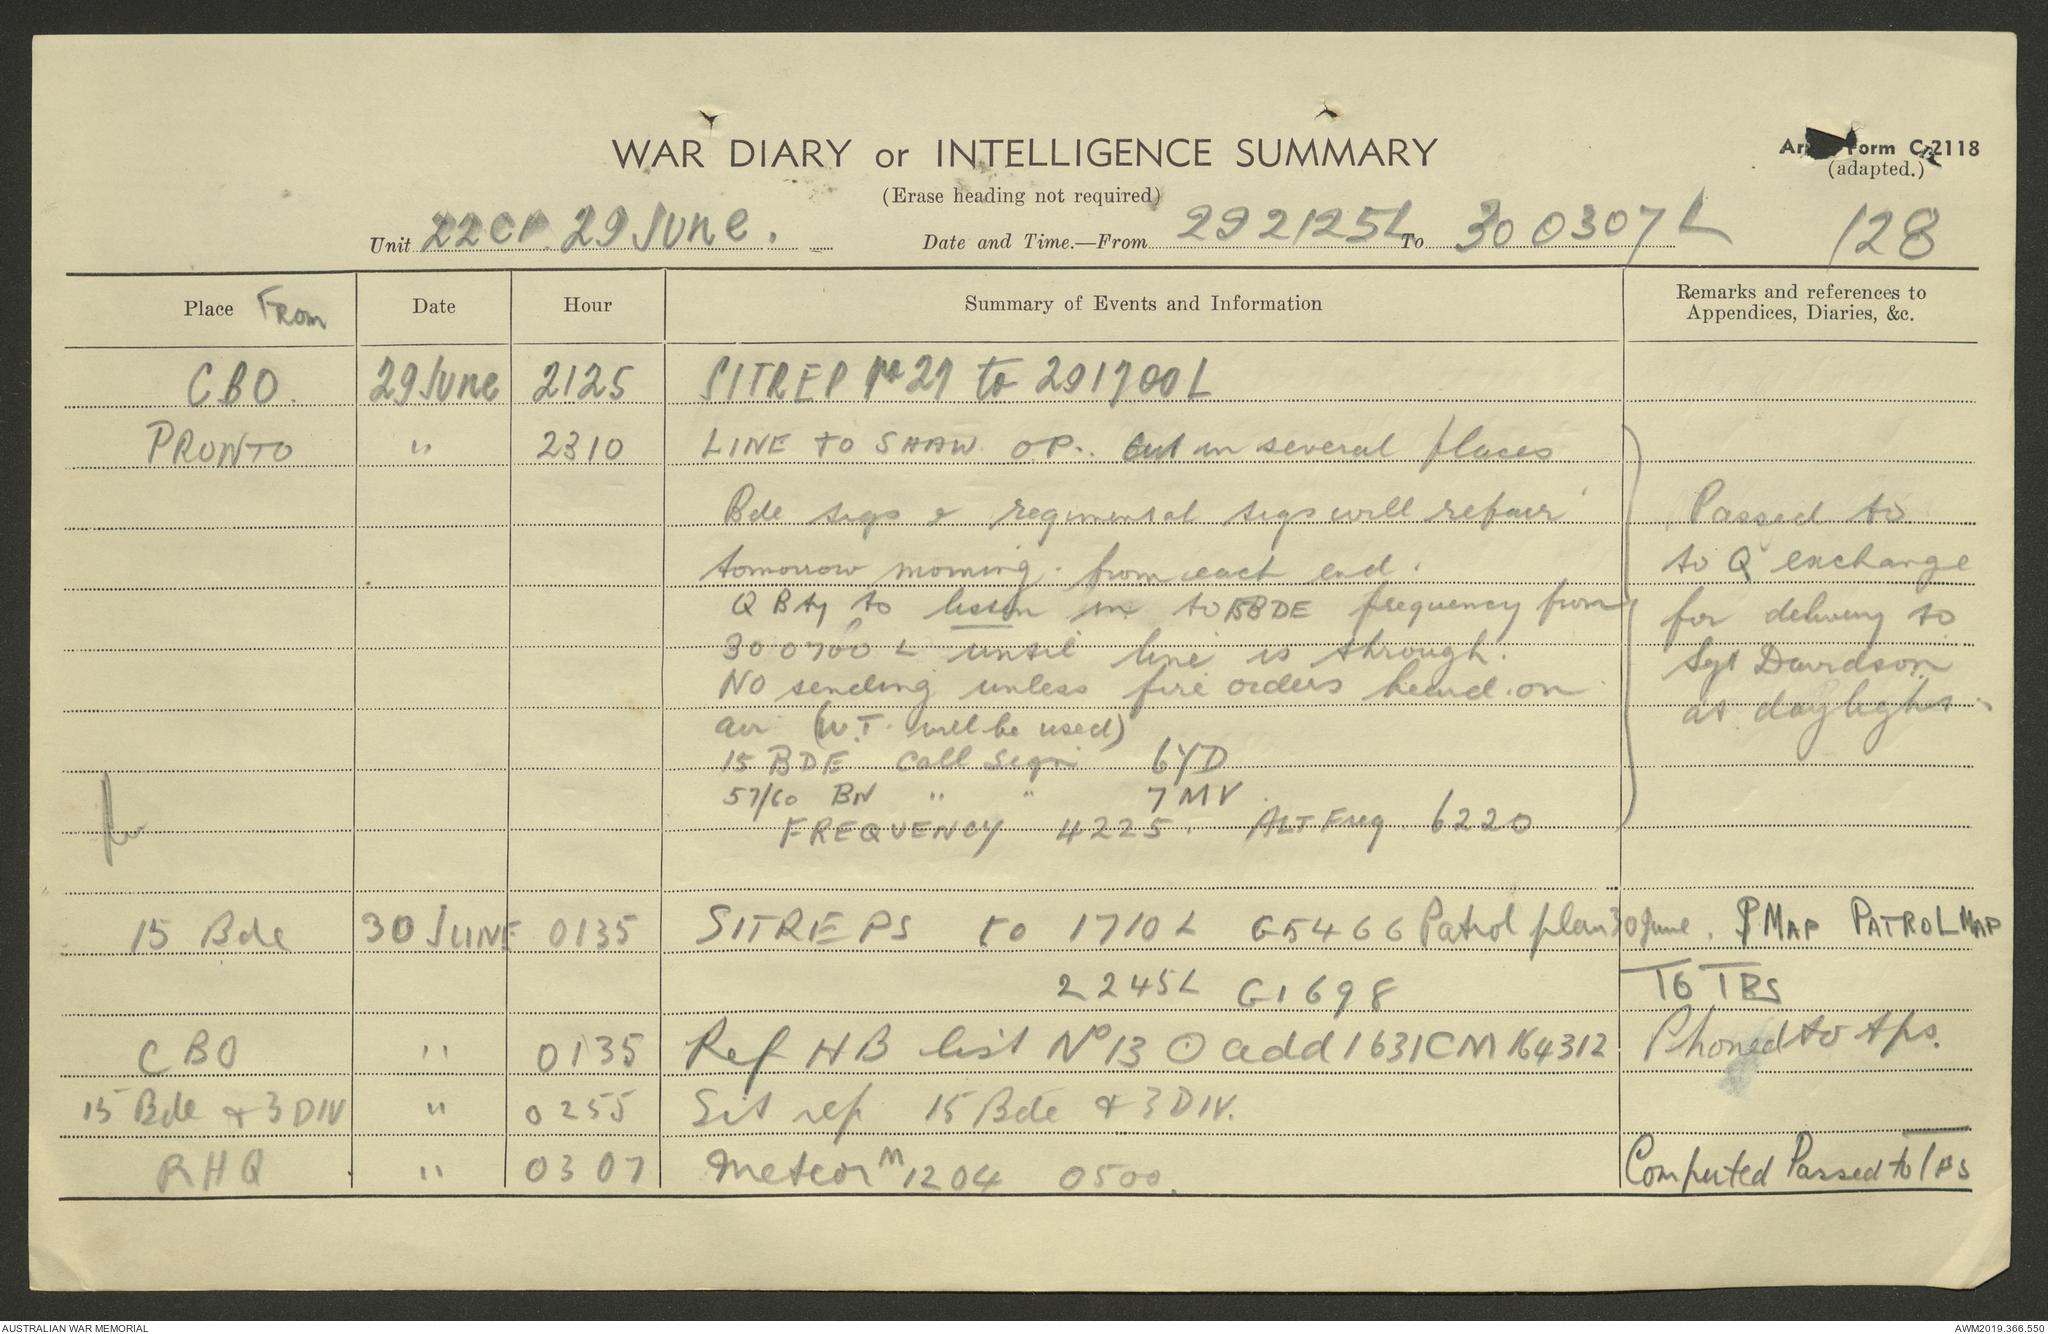 WAR DIARY or INTELLIGENCE SUMMARY
(Erase heading not required)
Form C.2118
(adapted.)
Unit 22 CP. 29 June.
Date and Time.—From 292125L To 300307L
128
Place From
Date
Hour
Summary of Events and Information
Remarks and references to
Appendices, Diaries, &c.
CBO. 29 June 2125 SITREP No 27 to 291700L
PRONTO " 2310 LINE TO SHAW OP.. Cut in several places
Bde sigs & regimental sigs will repair
tomorrow morning. from each end.
Q Bty to listen in to 15 BDE frequency from
300700L until line is through.
No sending unless fire orders heard on
air (W.T. will be used)
15 BDE Call Sign 6YD
57/60 BN " " 7MV.
FREQUENCY 4225. ALT Freq. 6220
Passed to
to Q exchange
for delivery to
Sgt Davidson
at daylight.
15 Bde 30 JUNE 0135 SITREPS to 1710L G5466 Patrol plan 30 June. MAP PATROL MAP
2245L G1698 TO TPS
CBO " 0135 Ref HB list No 13 O add 1631CM 164312 Phoned to tps.
15 Bde & 3 DIV " 0255 Sit rep 15 Bde & 3 DIV.
RHQ " 0307 Meteor M 1204 0500. Computed Passed to Tps
AUSTRALIAN WAR MEMORIAL
AWM2019.366.550